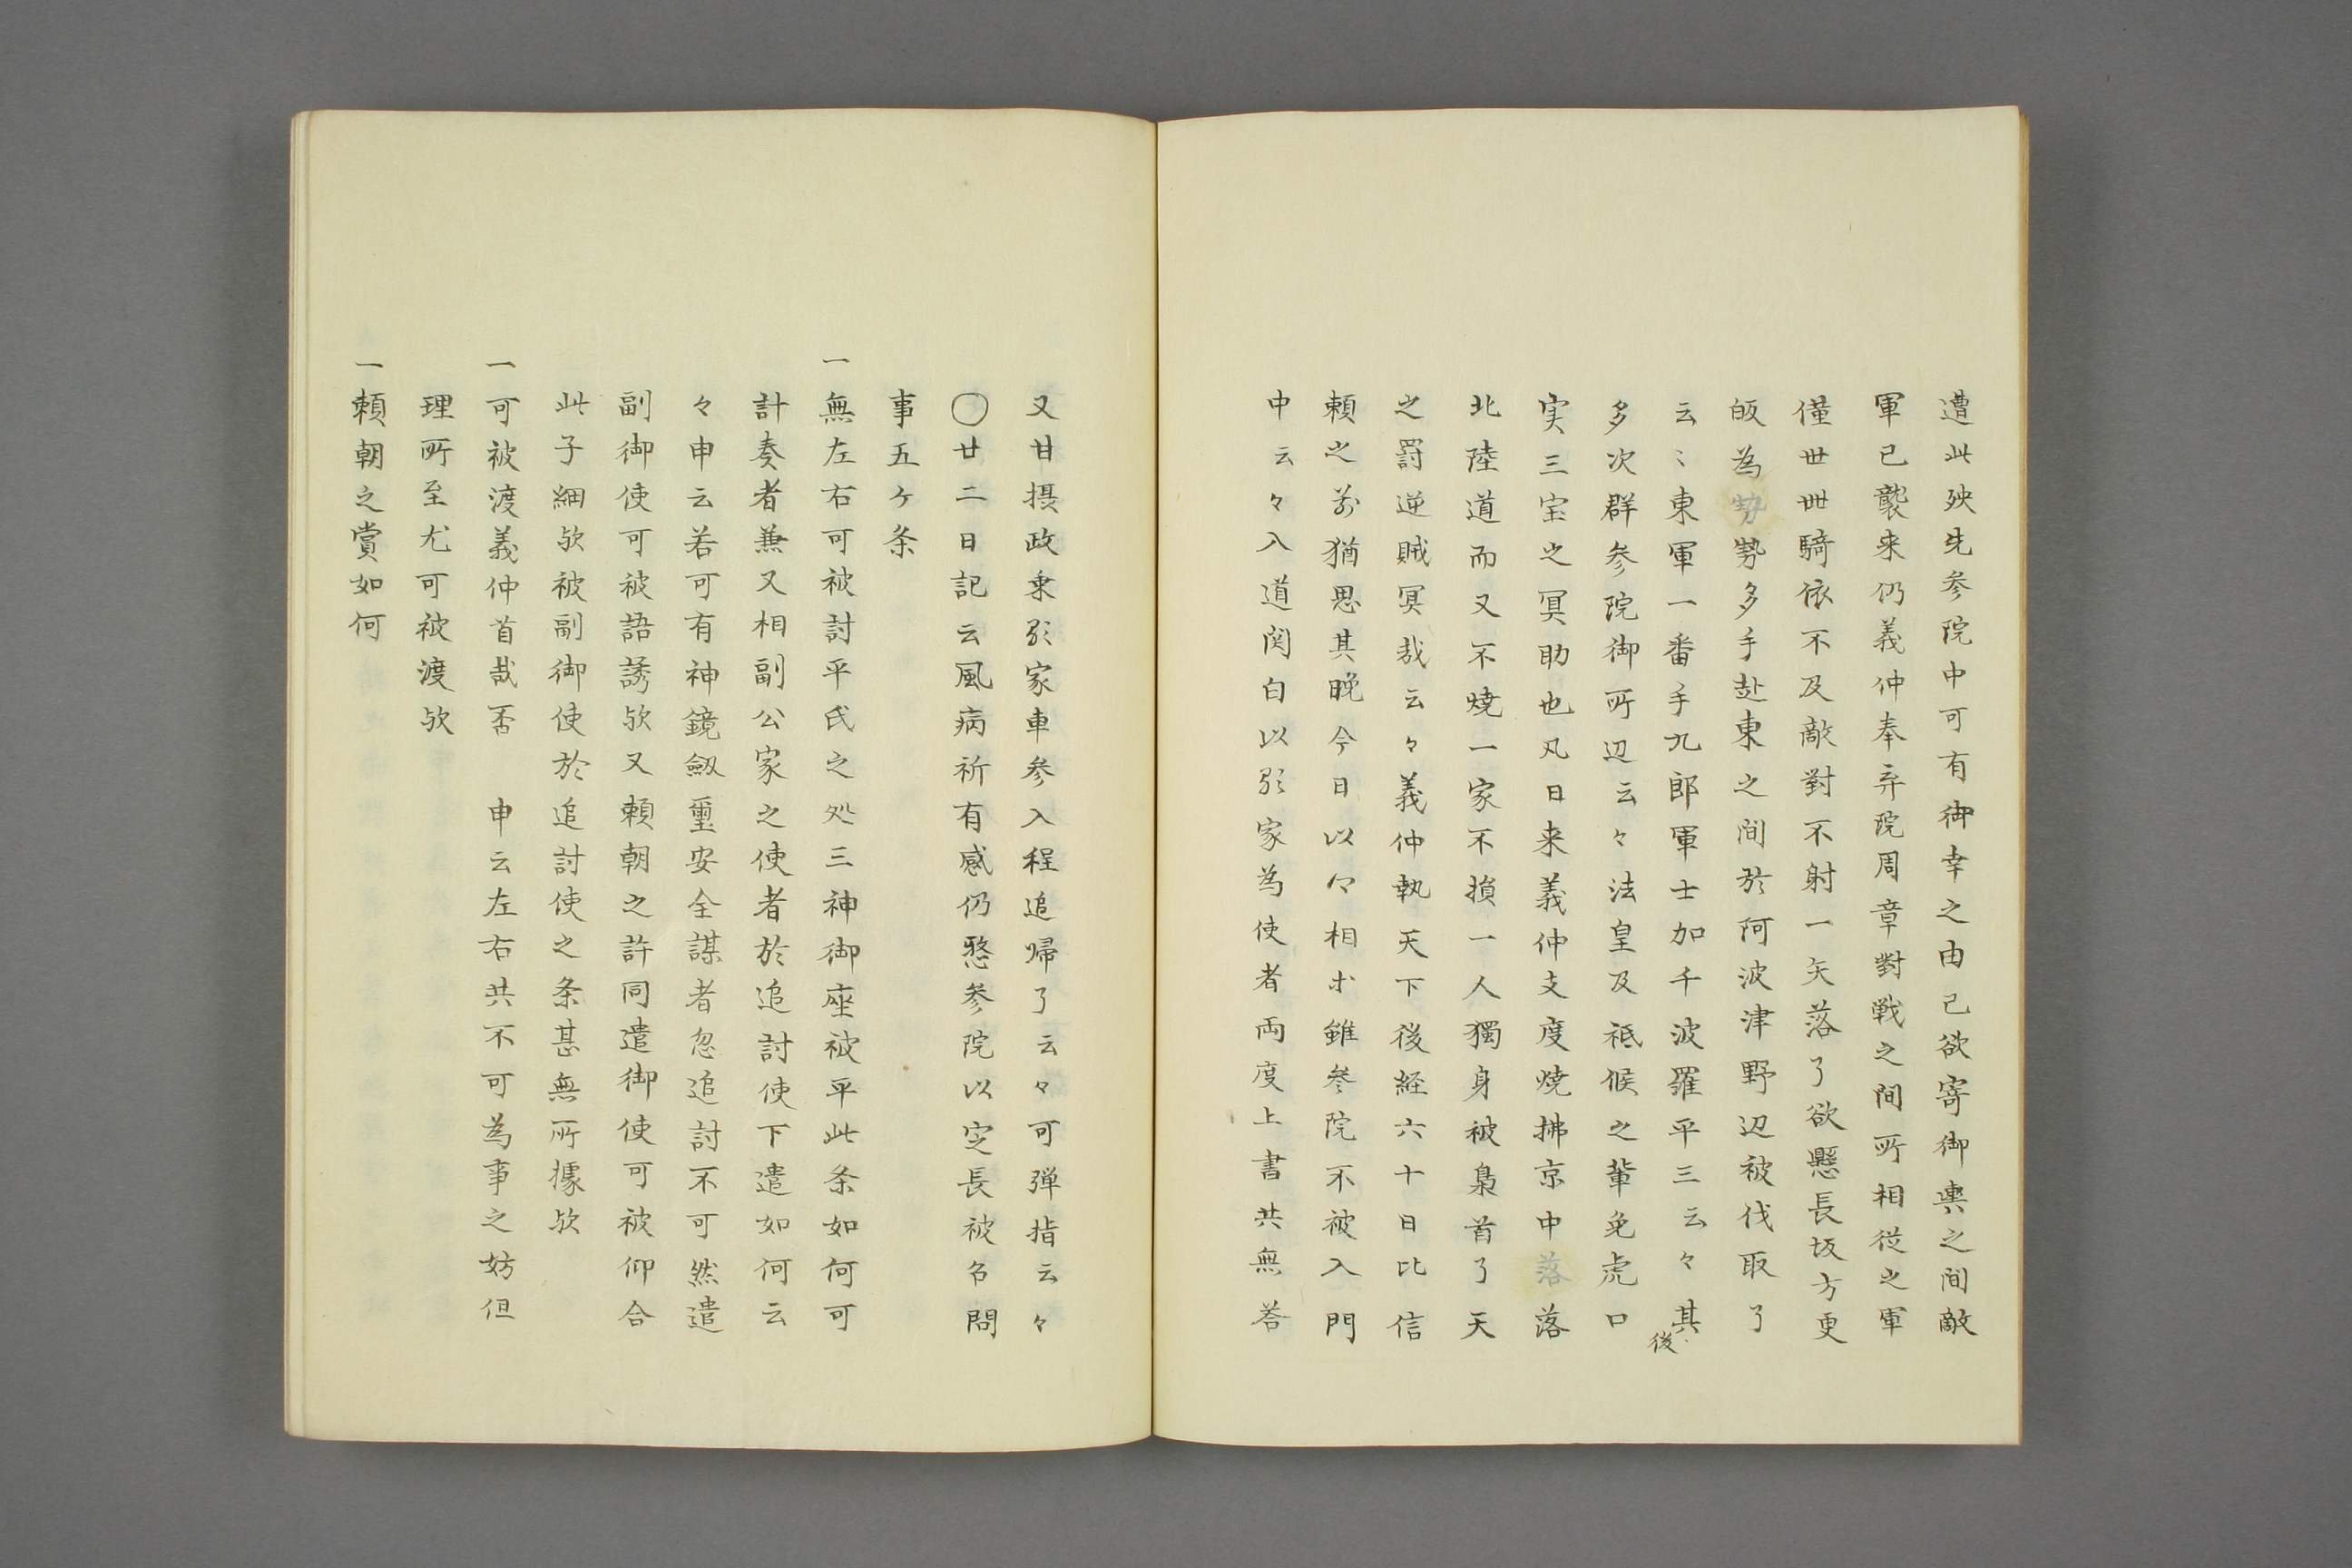 遭此殃先参院中可有御幸之由已欲寄御輿之間敵
軍已襲来仍義仲奉弃院周章對戦之間所相従之軍
僅丗丗騎依不及敵對不射一矢落了欲懸長坂方更
皈為勢勢多手赴東之間於阿波津野辺被伐取了
云〻東軍一番手九郎軍士加千波羅平三云々其後
多次群参院御所辺云々法皇及祗候之輩免虎口
実三宝之冥助也凡日来義仲支度焼拂京中落落
北陸道而又不焼一家不損一人獨身被梟首了天
之罰逆賊冥哉云々義仲執天下後経六十日比信
頼之前猶思其晩今日以々相尓雖参院不被入門
中云々入道関白以顕家為使者両度上書共無答
又甘摂政乗顕家車参入程追帰了云々可弾指云々
〇廿二日記云風病祈有感仍憖参院以定長被召問
事五ヶ条
一無左右可被討平氏之処三神御座被平此条如何可
計奏者兼又相副公家之使者於追討使下遣如何云
々申云若可有神鏡劔璽安全謀者忽追討不可然遣
副御使可被語誘欤又頼朝之許同遣御使可被仰合
此子細欤被副御使於追討使之条甚無所據欤
一可被渡義仲首哉否 申云左右共不可為事之妨但
理所至尤可被渡欤
一頼朝之賞如何